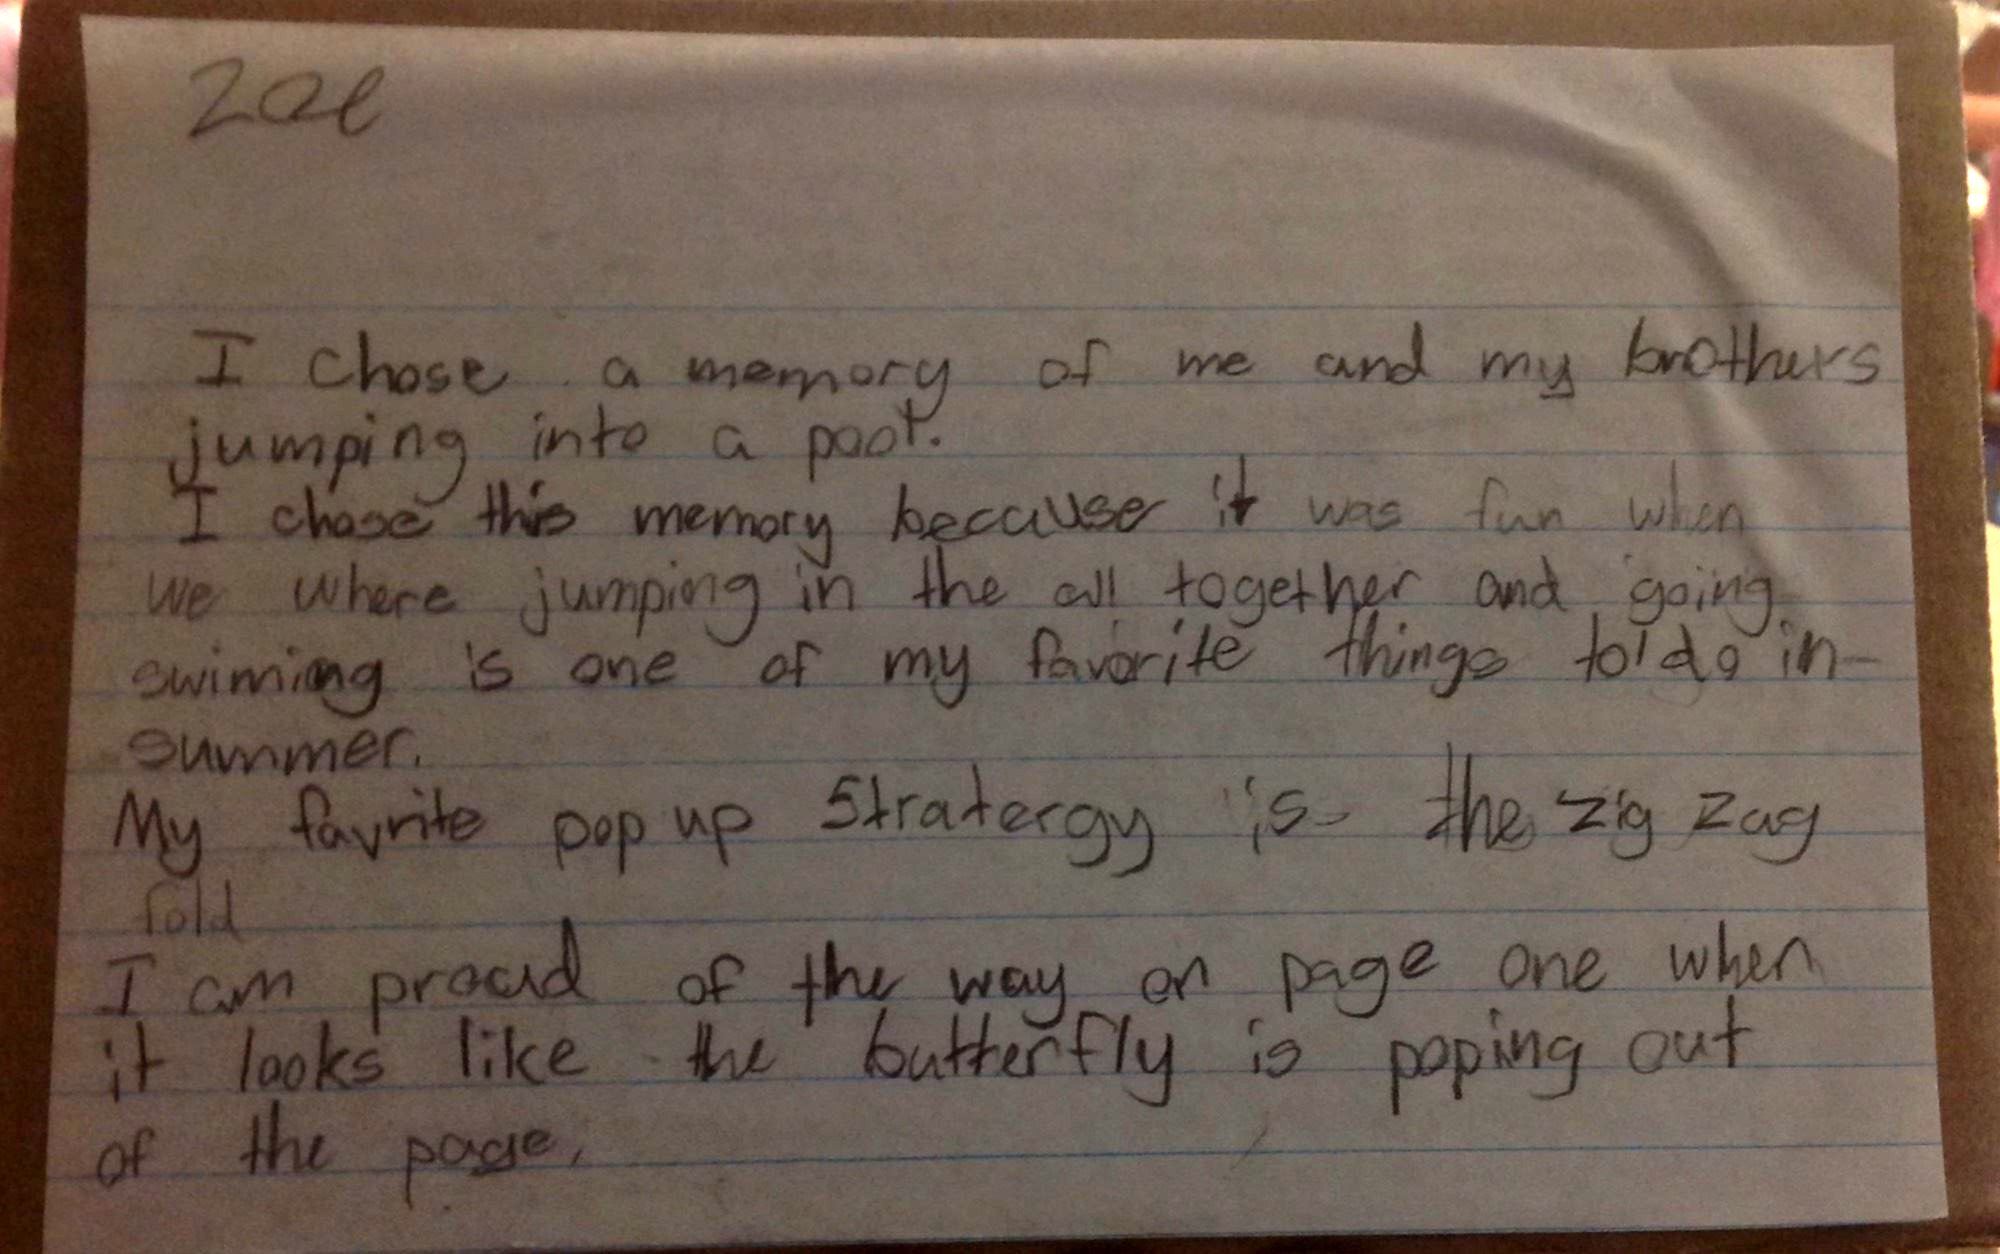 Zoe
I chose a memory of me and my brothers
jumping into a pool.
I chose this memory because it was fun when
we where jumping in the all together and going
swiming is one of my favorite things to do in
summer.
My favrite pop up Stratergy is the zig zag
fold
I am proud of the way on page one when
it looks like the butterfly is poping out
of the page.